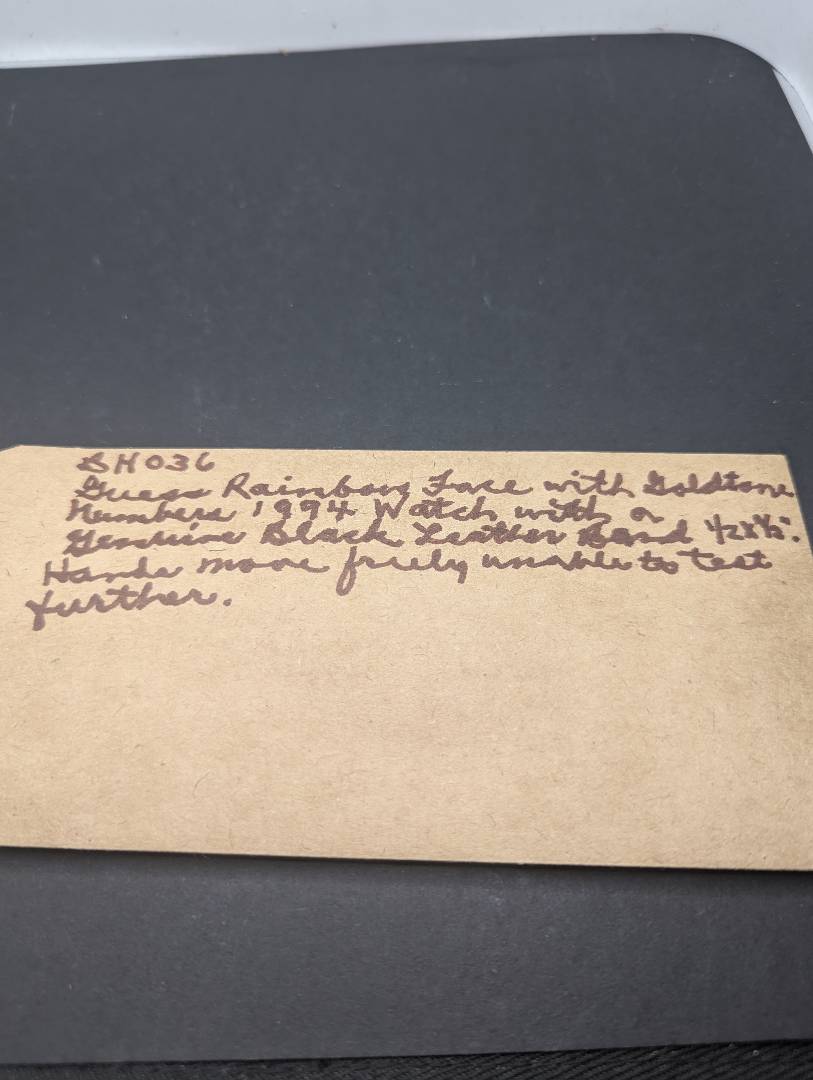 SH036
Guess Rainbow Face with Goldtone
Numbers 1994 Watch with a
Genuine Black Leather Band
Hands move freely unable to test
further.